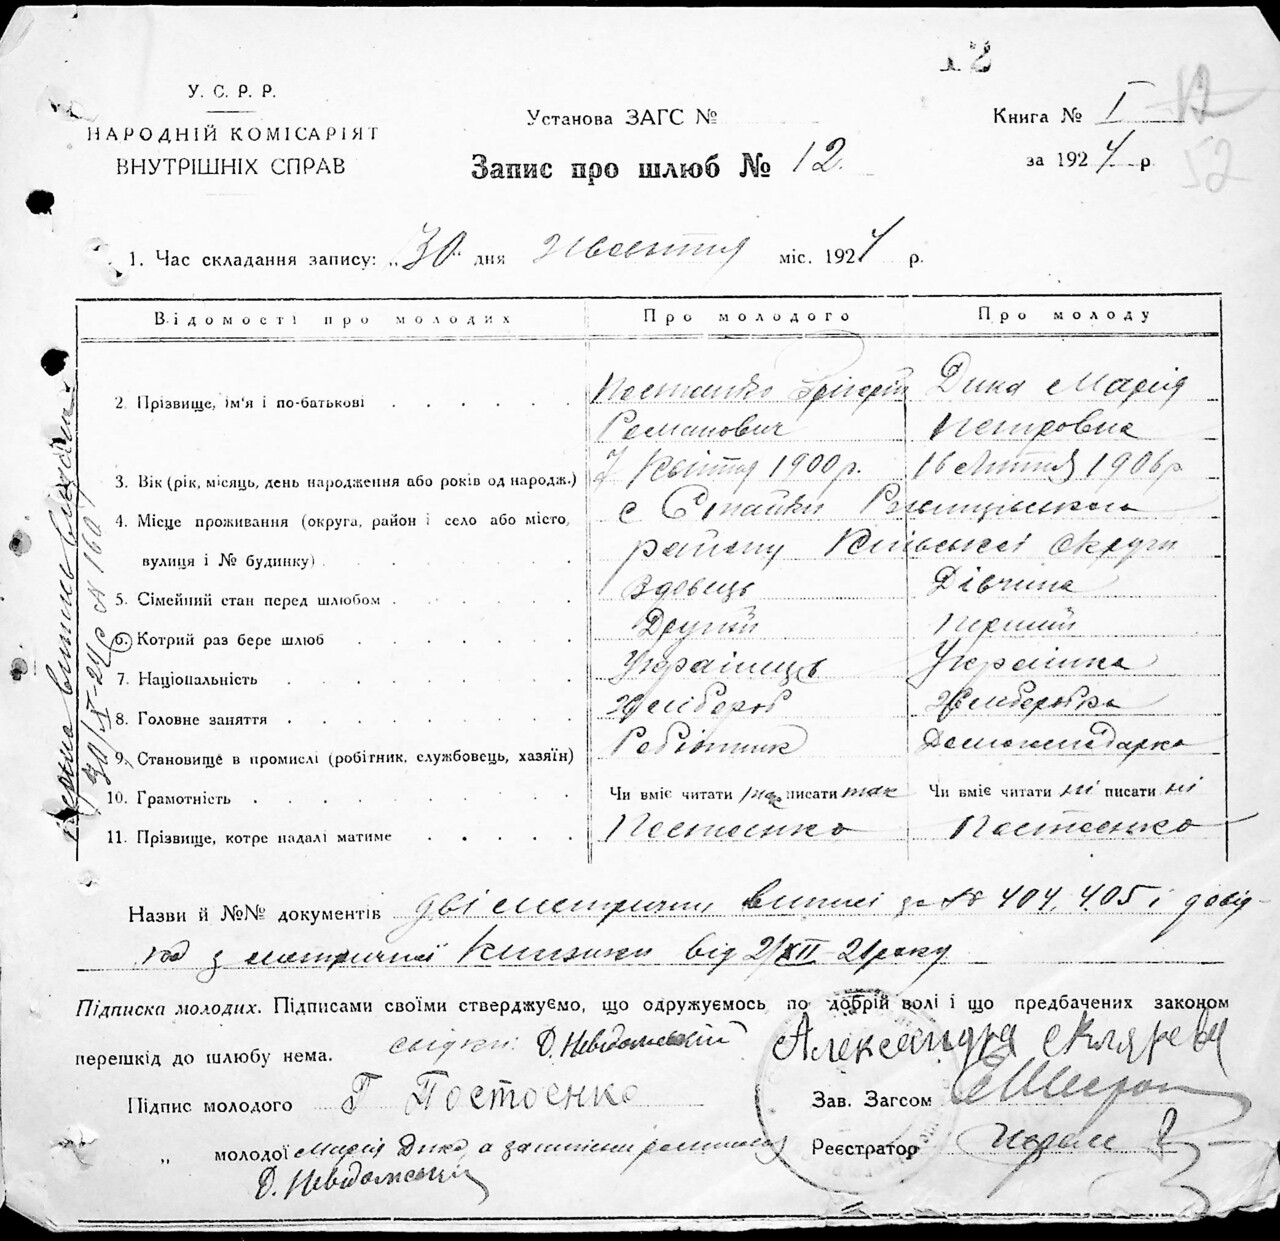 12
У. С. Р. Р.
НАРОДНІЙ КОМІСАРІЯТ
ВНУТРІШНІХ СПРАВ
Установа ЗАГС №
Запис про шлюб № 12.
Книга № I 12
за 1924 р.
52
1. Час складання запису: „30" дня Жовтня міс. 1924 р.
Відомості про молодих Про молодого Про молоду
2. Прізвище, ім'я і по-батькові Григорій Дика Марія
Романович Петровна
3. Вік (рік, місяць, день народження або років од народж.) 7 Квітня 1900 р. 16 1906 р
4. Місце проживання (округа, район і село або місто, с Стайки Ржищівського
вулиця і № будинку) району Київської Округи
5. Сімейний стан перед шлюбом Вдовець Дівчина
6. Котрий раз бере шлюб Другий Перший
7. Національність Українець Українка
8. Головне заняття Хлібороб Хлиборобка
9. Становище в промислі (робітник, службовець, хазяїн) Робітник Домогосподарка
10. Грамотність Чи вміє читати так писати так Чи вміє читати ні писати ні
11. Прізвище, котре надалі матиме Постоєнко Постоєнко
30/X-24 р № 160
Назви й №№ документів дві метричні виписі за № 404, 405 і довід-
ка з метричної Книжки від 2/XII-21 року
Підписка молодих. Підписами своїми стверджуємо, що одружуємось по добрій волі і що предбачених законом
перешкід до шлюбу нема. свідки: Д. Невідомський Александра Склярова
Підпис молодого Г Постоєнко Зав. Загсом
„ молодої Марія Дика, а Реєстратор
Д. Невідомський